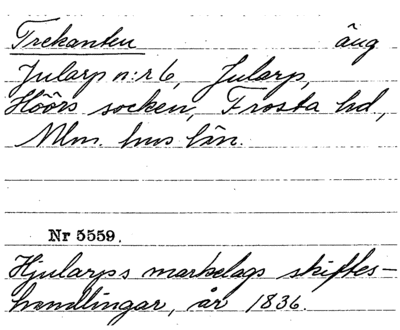 Trekanten äng
Jularp n:r 6, Jularp,
Höörs socken, Frosta hd.,
Mlm. hus län.
Nr 5559.
Hjularps markelags skiftes-
handlingar, år 1836.